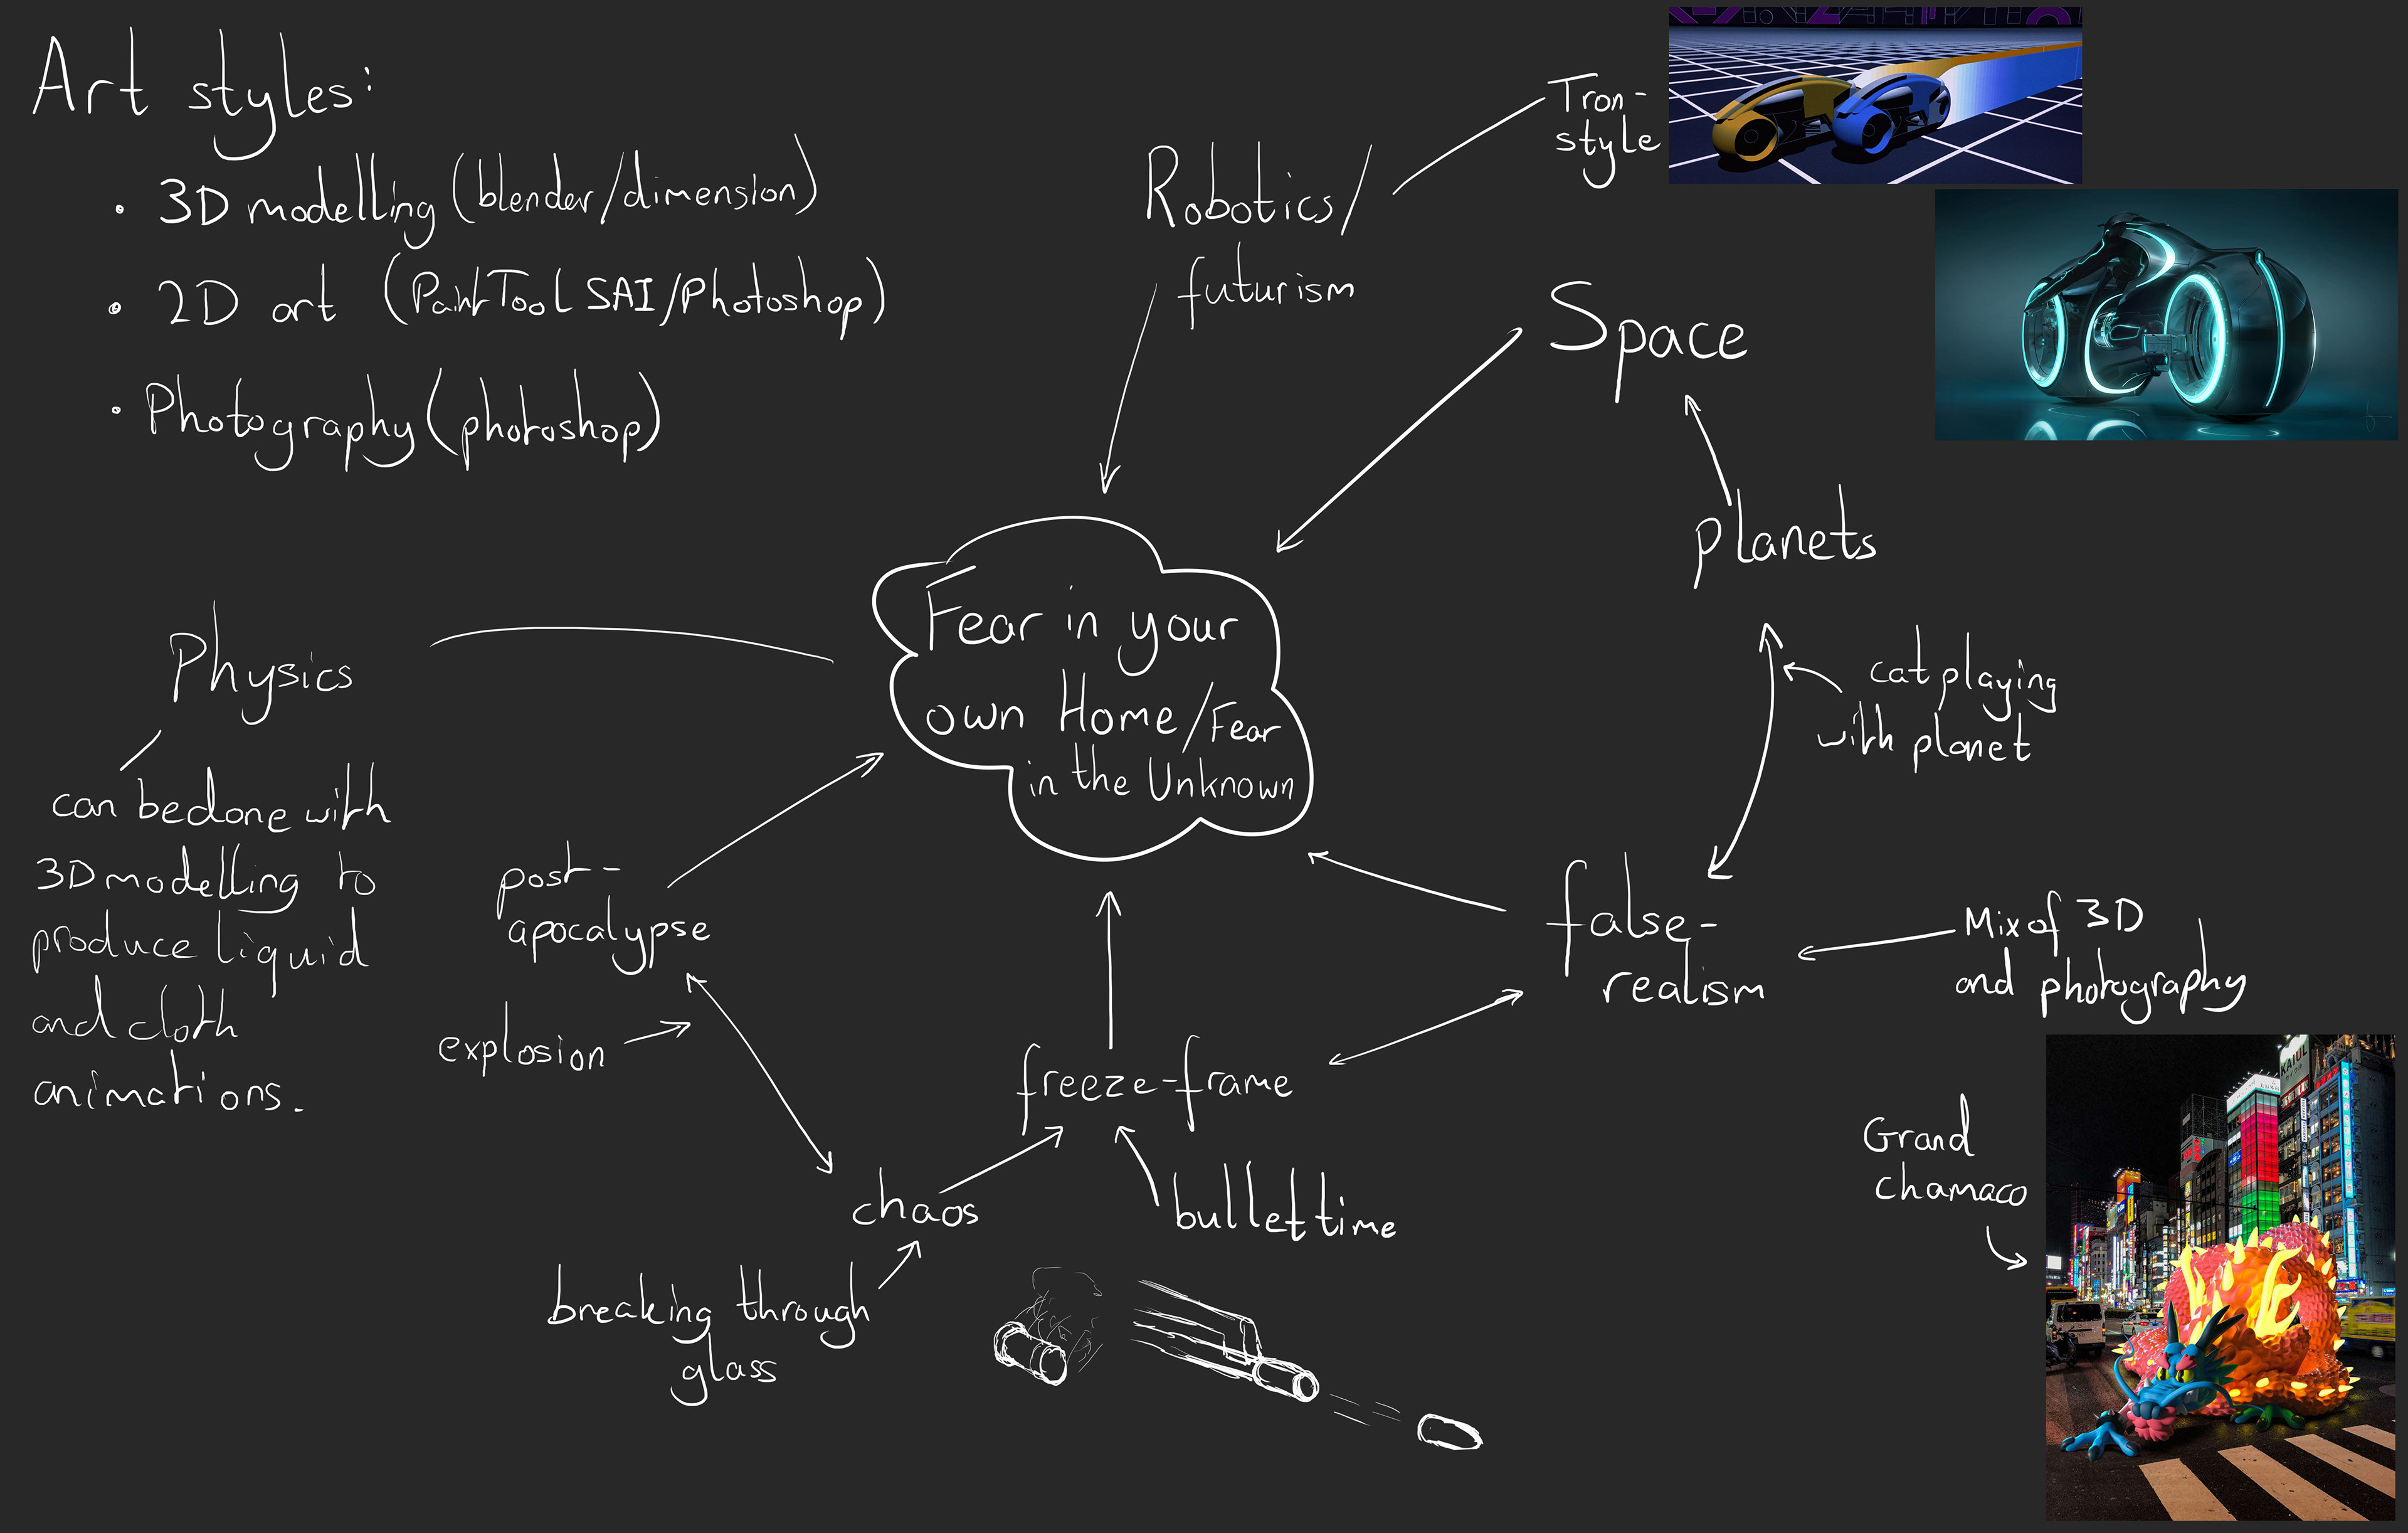 Art styles:
• 3D modelling (blender/dimension)
• 2D art (PaintTool SAI/Photoshop)
• Photography (photoshop)
Tron-
style
Robotics/
futurism
Space
planets
cat playing
with planet
Fear in your
own Home/Fear
in the Unknown
Physics
can be done with
3D modelling to
produce liquid
and cloth
animations.
post-
apocalypse
explosion
false-
realism
Mix of 3D
and photography
freeze-frame
chaos
bullet time
breaking through
glass
Grand
chamaco
KAIUL